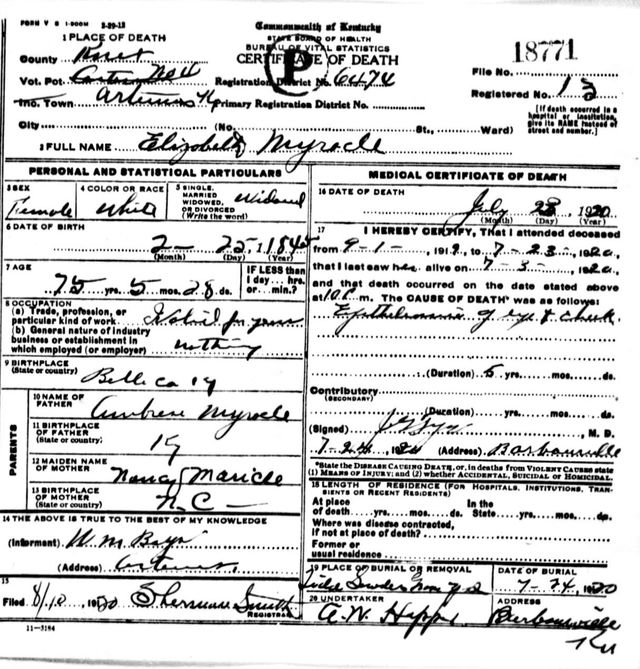 FORM V S 1-500M 3-29-18
Commonwealth of Kentucky
STATE BOARD OF HEALTH
BUREAU OF VITAL STATISTICS
CERTIFICATE OF DEATH
P
1 PLACE OF DEATH
County Knox
Vot. Pct. No 4 Registration District No. 6474
Inc. Town Artemus Ky Primary Registration District No.
File No. 18771
Registered No. 13
[If death occurred in a hospital or institution, give its NAME instead of street and number.]
City (No. St., Ward)
2 FULL NAME Elizabeth Myracle
PERSONAL AND STATISTICAL PARTICULARS
3 SEX Female
4 COLOR OR RACE White
5 SINGLE, MARRIED WIDOWED, OR DIVORCED (Write the word) Widowed
6 DATE OF BIRTH
2 - 25 1845
(Month) (Day) (Year)
7 AGE
75 yrs. 5 mos. 28 ds.
IF LESS than 1 day... hrs. or... min.?
8 OCCUPATION
(a) Trade, profession, or particular kind of work
(b) General nature of industry business or establishment in which employed (or employer) nothing
9 BIRTHPLACE
(State or country) Bell co Ky
PARENTS
10 NAME OF FATHER Ambrose Myracle
11 BIRTHPLACE OF FATHER (State or country) Ky
12 MAIDEN NAME OF MOTHER Nancy Maricle
13 BIRTHPLACE OF MOTHER (State or country) N.C -
14 THE ABOVE IS TRUE TO THE BEST OF MY KNOWLEDGE
(Informant) W.M
(Address) Artemus
15
Filed 8/10, 1920 Sherman Smith
REGISTRAR
11-3184
MEDICAL CERTIFICATE OF DEATH
16 DATE OF DEATH
July 23, 1920
(Month) (Day) (Year)
17 I HEREBY CERTIFY, That I attended deceased
from 9-1-, 1919, to 7-23-, 1920,
that I last saw her alive on 7-3-, 1920,
and that death occurred on the date stated above
at 10 P. m. The CAUSE OF DEATH* was as follows:
Epithelioma of eye & cheek
(Duration) 5 yrs. mos. ds.
Contributory
(SECONDARY)
(Duration) yrs. mos. ds.
(Signed) M. D.
7-24, 1920 (Address) Barbourville
*State the DISEASE CAUSING DEATH, or, in deaths from VIOLENT CAUSES state (1) MEANS OF INJURY; and (2) whether ACCIDENTAL, SUICIDAL OR HOMICIDAL.
18 LENGTH OF RESIDENCE (FOR HOSPITALS, INSTITUTIONS, TRANSIENTS OR RECENT RESIDENTS)
At place of death yrs. mos. ds. In the State yrs. mos. ds.
Where was disease contracted, If not at place of death?
Former or usual residence
19 PLACE OF BURIAL OR REMOVAL
DATE OF BURIAL
7-24, 1920
20 UNDERTAKER
A.W. Hopper
ADDRESS
Barbourville
Ky